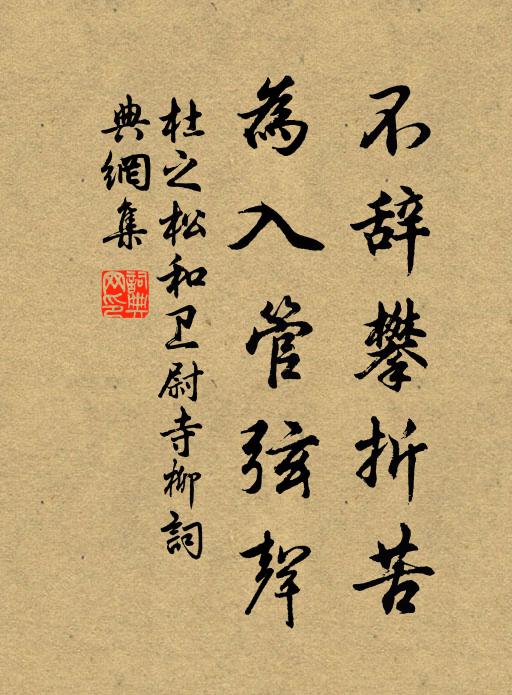 不辞攀折苦
為入管弦聲
杜之松和卫尉寺柳詞
典網集
詞典网印